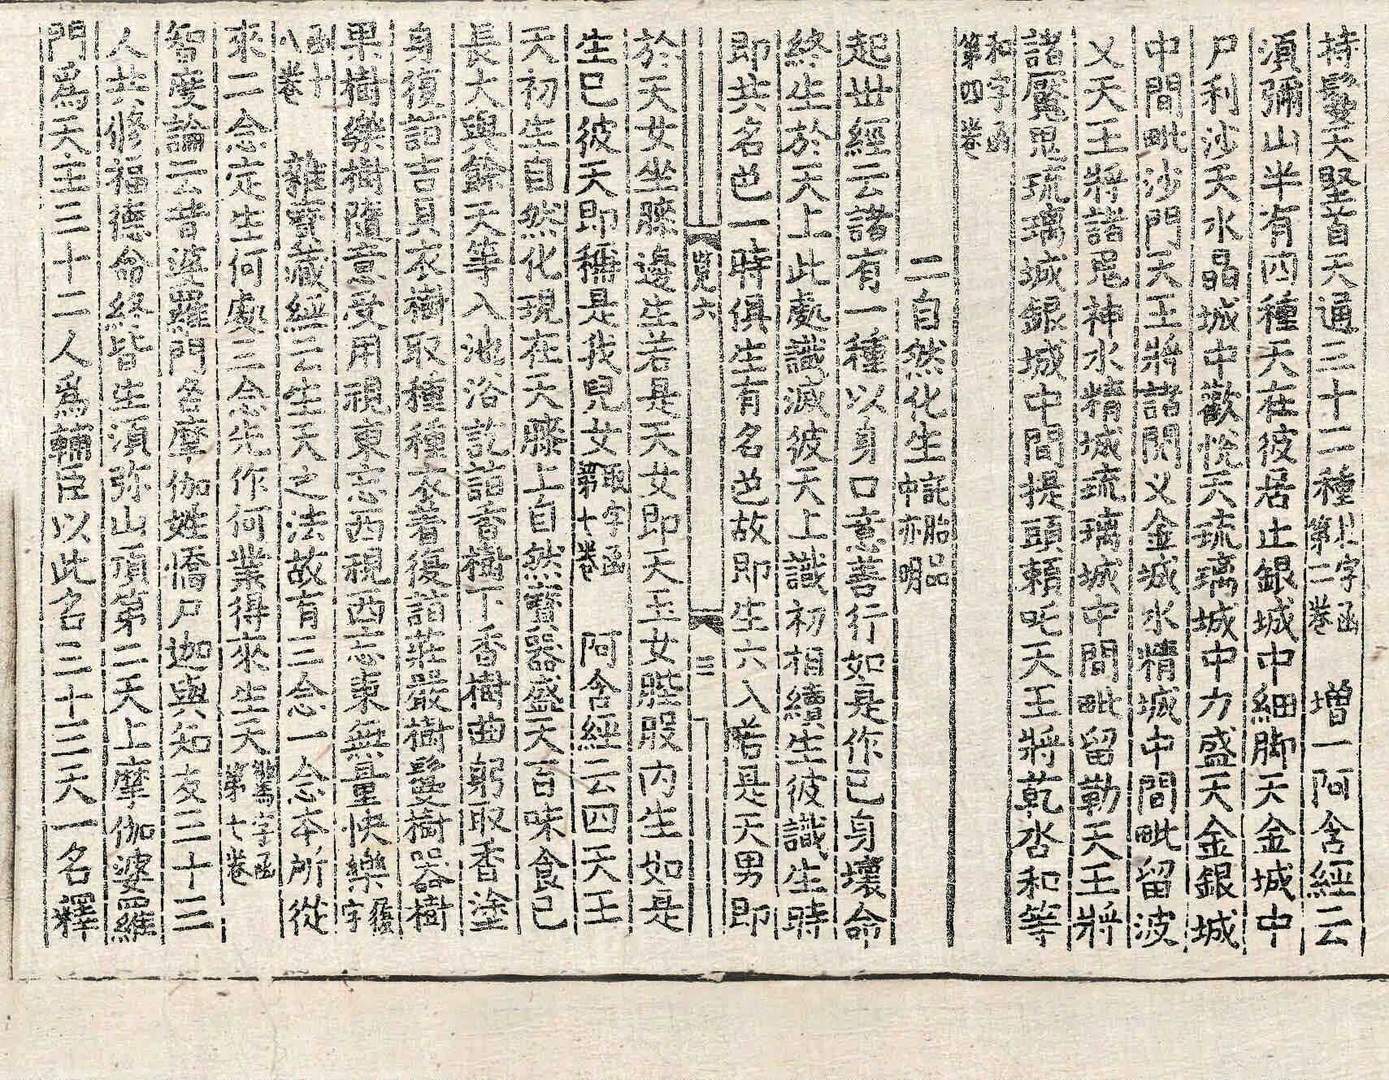 持鬘天堅首天通三十二種止字函第二卷 增一阿含經云
須彌山半有四種天在彼居止銀城中細脚天金城中
尸利沙天水晶城中歡悅天琉璃城中力盛天金銀城
中間毗沙門天王將諸閱义金城水精城中間毗留波
义天王將諸鬼神水精城琉璃城中間毗留勒天王將
諸魘鬼琉璃城銀城中間提頭賴吒天王將乹沓和等
和字函第四卷
二自然化生託胎品中亦明
起丗經云諸有一種以身口意善行如是作已身壞命
終生於天上此處識滅彼天上識初相續生彼識生時
即共名色一時俱生有名色故即生六入若是天男即
覽六 三
於天女坐膝邊生若是天女即天玉女䏶股內生如是
生已彼天即稱是我兒女取字函第七卷 阿含經云四天王
天初生自然化現在天膝上自然寶器盛天百味食已
長大與餘天等入池浴訖詣香樹下香樹曲躬取香塗
身復詣吉貝衣樹取種種衣著復詣莊嚴樹鬘樹器樹
果樹樂樹隨意受用視東忘西視西忘東無量快樂覆字
函十八卷 雜寶藏經云生天之法故有三念一念本所從
來二念定生何處三念先作何業得來生天駕字函第七卷
智度論云昔婆羅門名摩伽姓憍尸迦與知友三十三
人共修福德命終皆生須弥山頂第二天上摩伽婆羅
門爲天主三十二人爲輔臣以此名三十三天一名釋